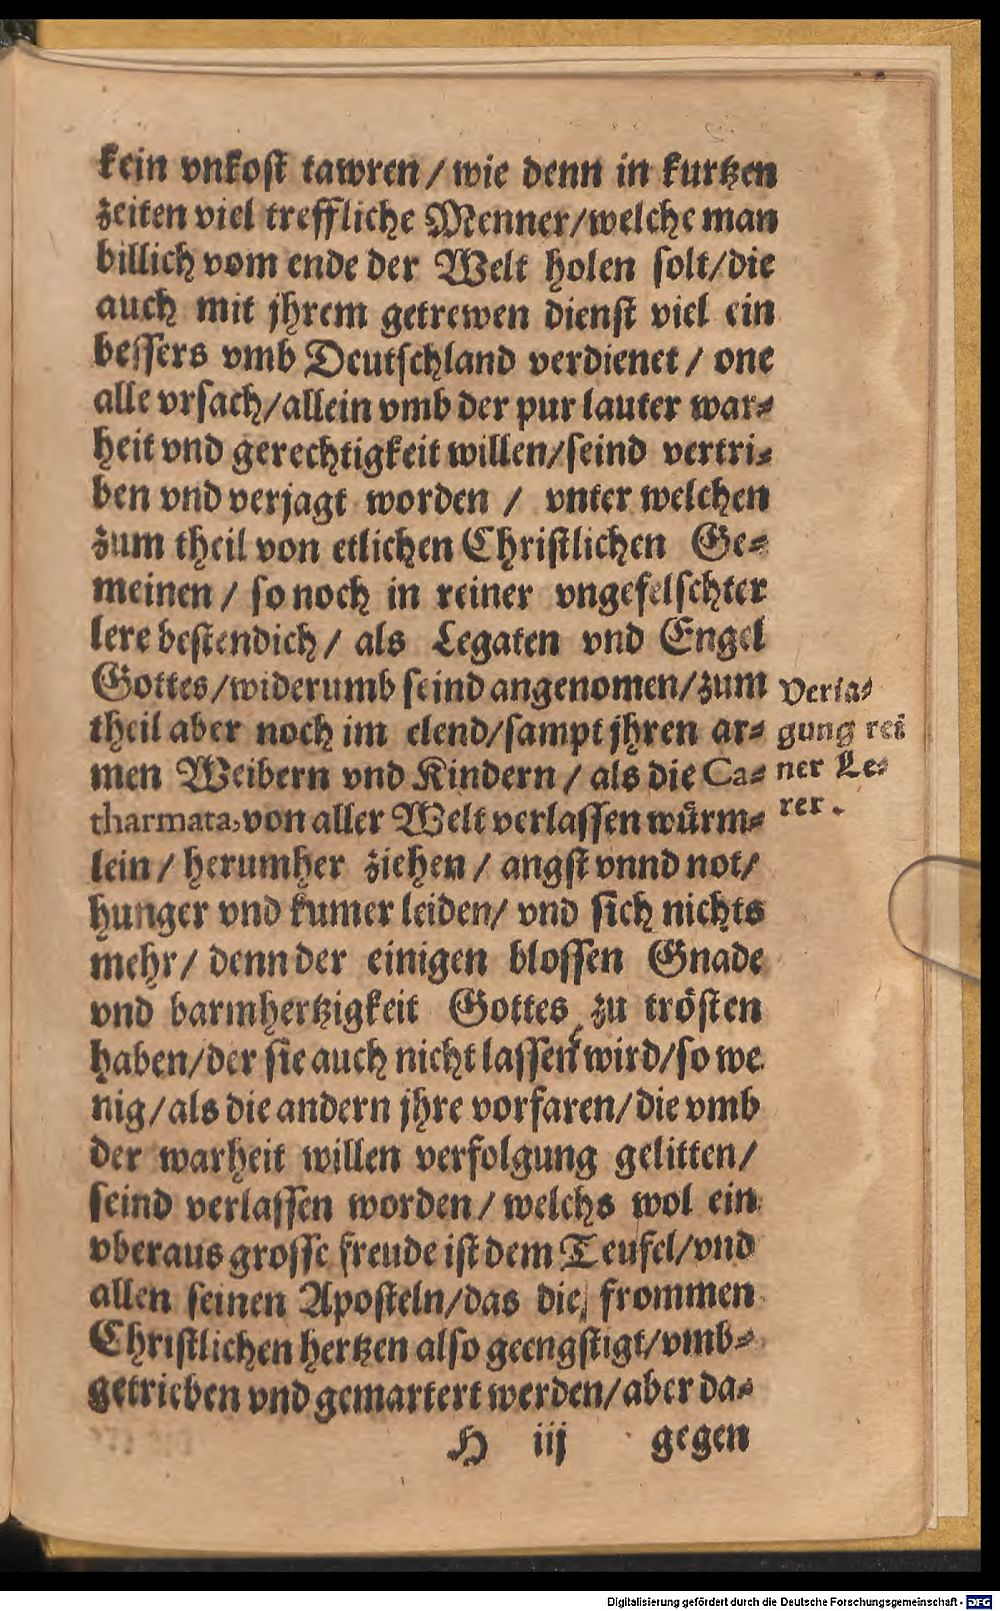 kein vnkost tawren / wie denn in kurtzen
zeiten viel treffliche Menner / welche man
billich vom ende der Welt holen solt / die
auch mit jhrem getrewen dienst viel ein
bessers vmb Deutschland verdienet / one
alle vrsach / allein vmb der pur lauter war⸗
heit vnd gerechtigkeit willen / seind vertri⸗
ben vnd verjagt worden / vnter welchen
zum theil von etlichen Christlichen Ge⸗
meinen / so noch in reiner vngefelschter
lere bestendich / als Legaten vnd Engel
Gottes / widerumb seind angenomen / zum
theil aber noch im elend / sampt jhren ar⸗
men Weibern vnd Kindern / als die Ca⸗
tharmata, von aller Welt verlassen würm⸗
lein / herumher ziehen / angst vnnd not /
hunger vnd kumer leiden / vnd sich nichts
mehr / denn der einigen blossen Gnade
vnd barmhertzigkeit Gottes zu trösten
haben / der sie auch nicht lassen wird / so we
nig / als die andern jhre vorfaren / die vmb
der warheit willen verfolgung gelitten /
seind verlassen worden / welchs wol ein
vberaus grosse freude ist dem Teufel / vnd
allen seinen Aposteln / das die frommen
Christlichen hertzen also geengstigt / vmb⸗
getrieben vnd gemartert werden / aber da⸗
H iij gegen
Veria⸗
gung rei
ner Le⸗
rer.
Digitalisierung gefördert durch die Deutsche Forschungsgemeinschaft - DFG